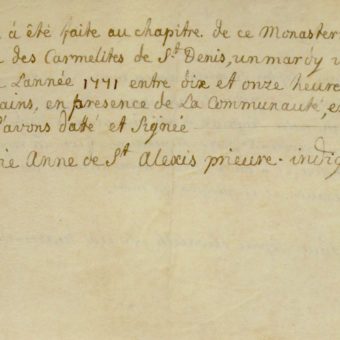 á été faite au chapitre de ce Monaster
des Carmelites de S.t Denis, un mardy
L'année 1771 entre dix et onze heure
ains, en presence de La Communauté, e
avons datté et Signée
ie Anne de S.t Alexis prieure. indig